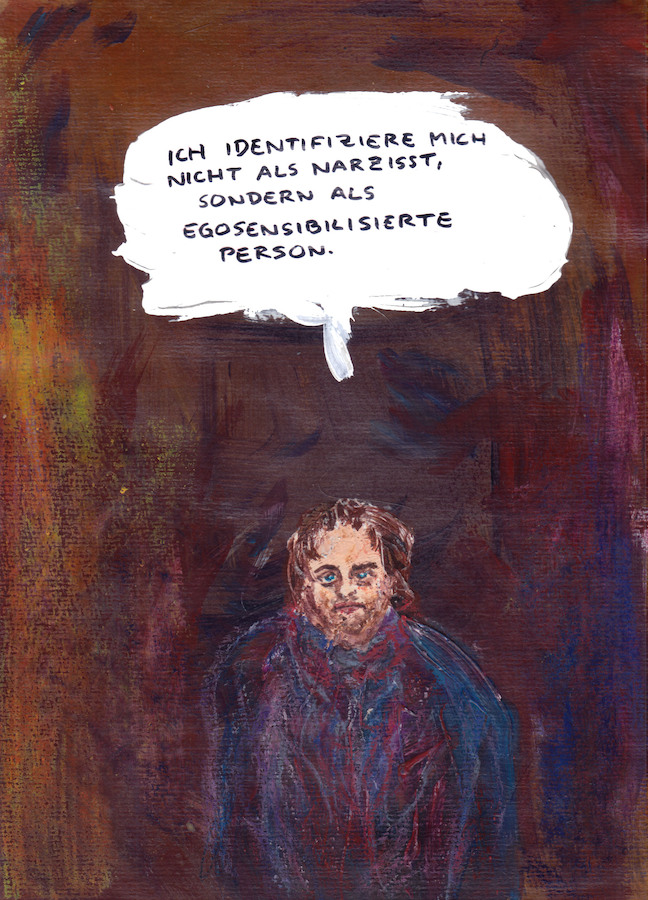 ICH IDENTIFIZIERE MICH
NICHT ALS NARZISST,
SONDERN ALS
EGOSENSIBILISIERTE
PERSON.